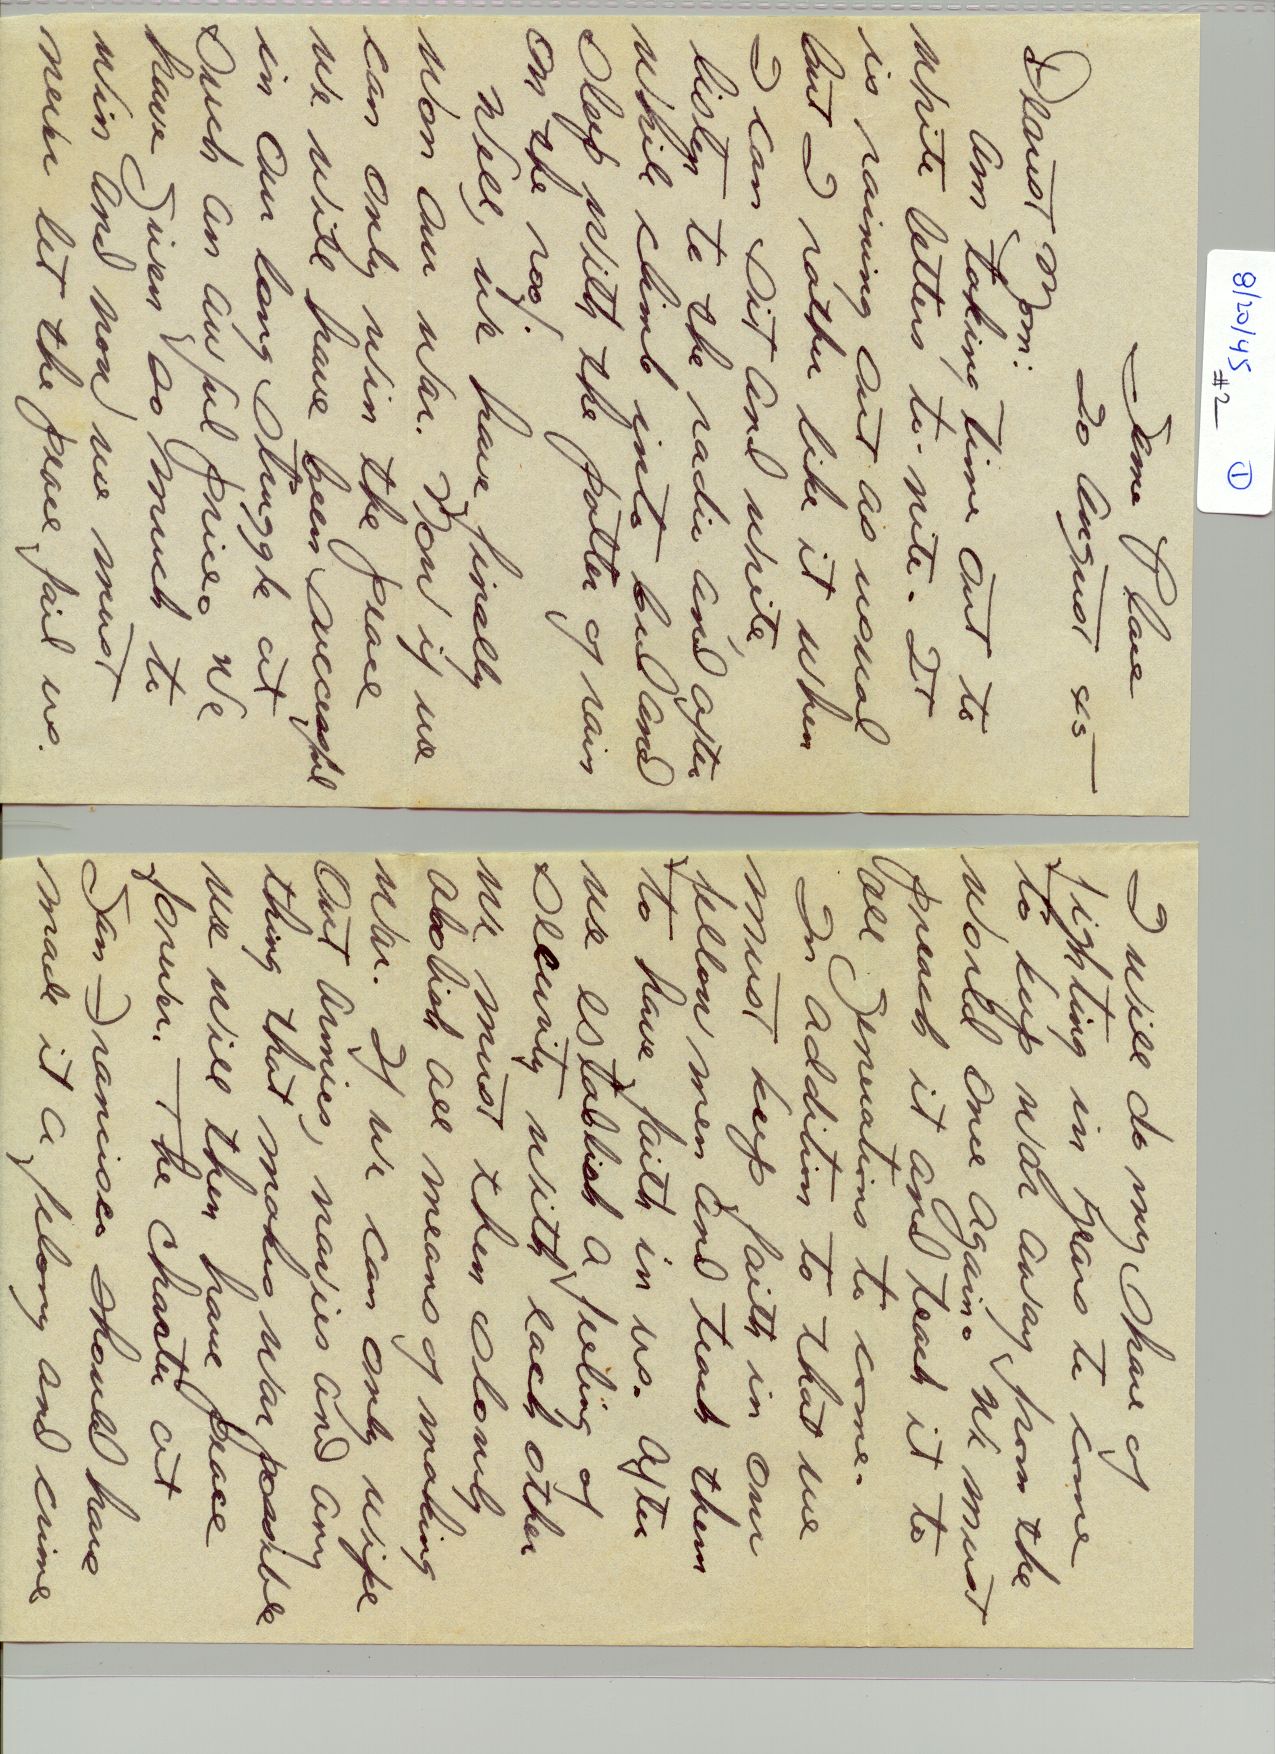 8/20/45
#2
①
Same Place
20 August 45
Dearest Mom:
Am taking time out to
write letters to-nite. It
is raining out as usual
but I rather like it when
I can sit and write,
listen to the radio and after
while climb into bed and
sleep with the patter of rain
on the roof.
Well, we have finally
won our war. Now if we
can only win the peace
we will have been successful
in our long struggle at
such an awful price. We
have given so much to
win and now we must
never let the peace fail us.
I will do my share of
fighting in years to come
to keep war away from the
world once again. We must
preach it and teach it to
all generations to come.
In addition to that we
must keep faith in our
fellow men and trust them
to have faith in us. After
we establish a feeling of
security with each other
we must then slowly
abolish all means of making
war. If we can only wipe
out armies, navies and any
thing that makes war possible
we will then have peace
forever. The charter at
San Francisco should have
made it a felony and crime